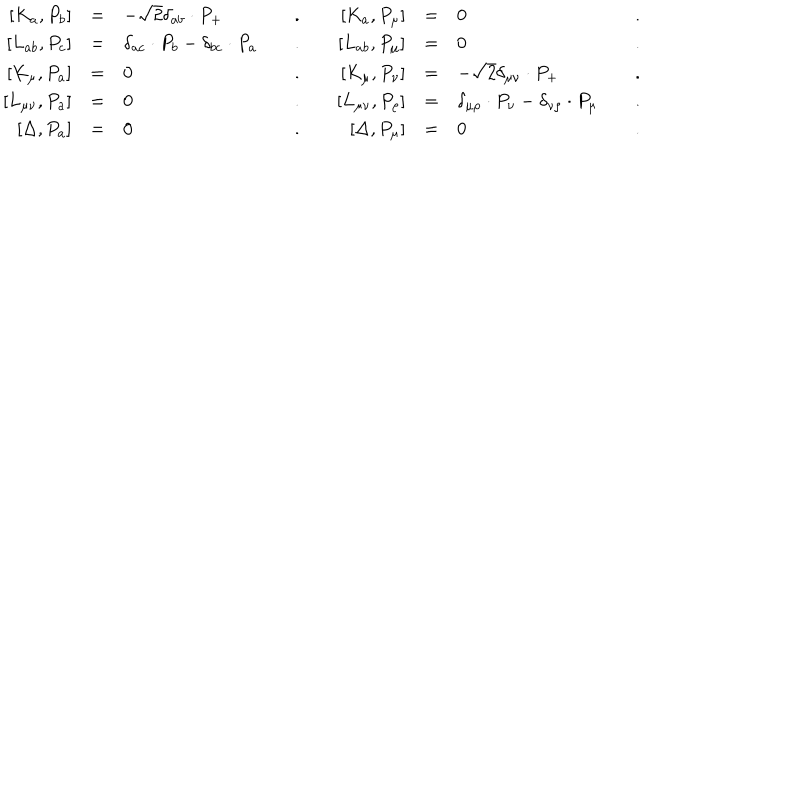 [K_a, P_b] = −√2δ_{ab} · P_+ . [K_a, P_μ] = 0 .
[L_{ab}, P_c] = δ_{ac} · P_b − δ_{bc} · P_a . [L_{ab}, P_μ] = 0 .
[K_μ, P_a] = 0 . [K_μ, P_ν] = −√2δ_{μν} · P_+ .
[L_{μν}, P_a] = 0 . [L_{μν}, P_ρ] = δ_{μρ} · P_ν − δ_{νρ} · P_μ .
[Δ, P_a] = 0 . [Δ, P_μ] = 0 .